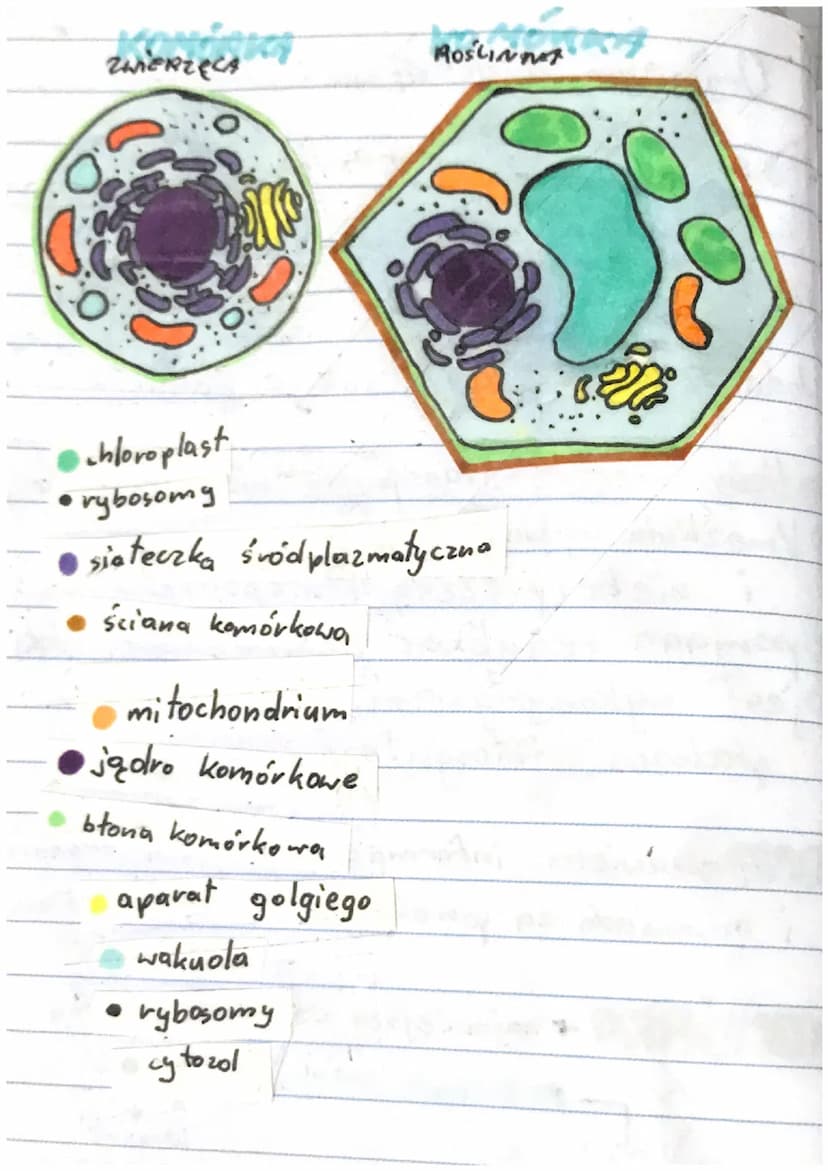 KOMÓRKA
ZWIERZĘCA
KOMÓRKA
ROŚLINNA
chloroplast
rybosomy
siateczka śródplazmatyczna
ściana komórkowa
mitochondrium
jądro komórkowe
błona komórkowa
aparat golgiego
wakuola
rybosomy
cytozol